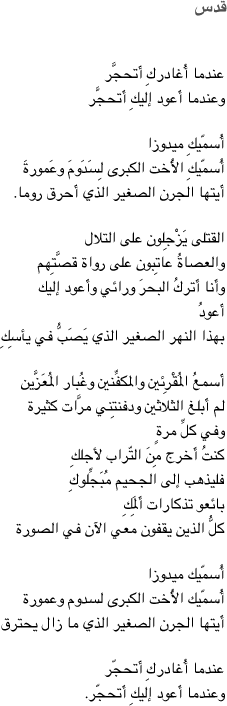 قدس
عندما أُغادركِ أتحجَّر
وعندما أعود إليكِ أتحجَّر
أُسمّيكِ ميدوزا
أُسمّيكِ الأُخت الكبرى لِسَدَومَ وعَمورةَ
أيتها الجرن الصغير الذي أحرق روما.
القتلى يَزْجلِون على التلال
والعصاةُ عاتِبون على رواة قصَّتِهم
وأنا أتركُ البحرَ ورائي وأعود إليك
أعودُ
بهذا النهر الصغير الذي يَصَبُّ في يأسكِ
أسمعُ المُقْرِئين والمكفِّنين وغُبار المُعَزَّين
لم أبلغ الثلاثين ودفنتِني مرَّات كثيرة
وفي كلِّ مرةٍ
كنتُ أخرج مِنَ التّراب لأجلكِ
فليذهب إلى الجحيم مُبَجِّلوكِ
بائعو تذكارات ألمَكِ
كلُّ الذين يقفون معي الآن في الصورة
أُسمّيكِ ميدوزا
أُسمّيكِ الأُخت الكبرى لسدوم وعمورة
أيتها الجرن الصغير الذي ما زال يحترق
عندما أُغادركِ أتحجّر
وعندما أعود إليكِ أتحجّر.